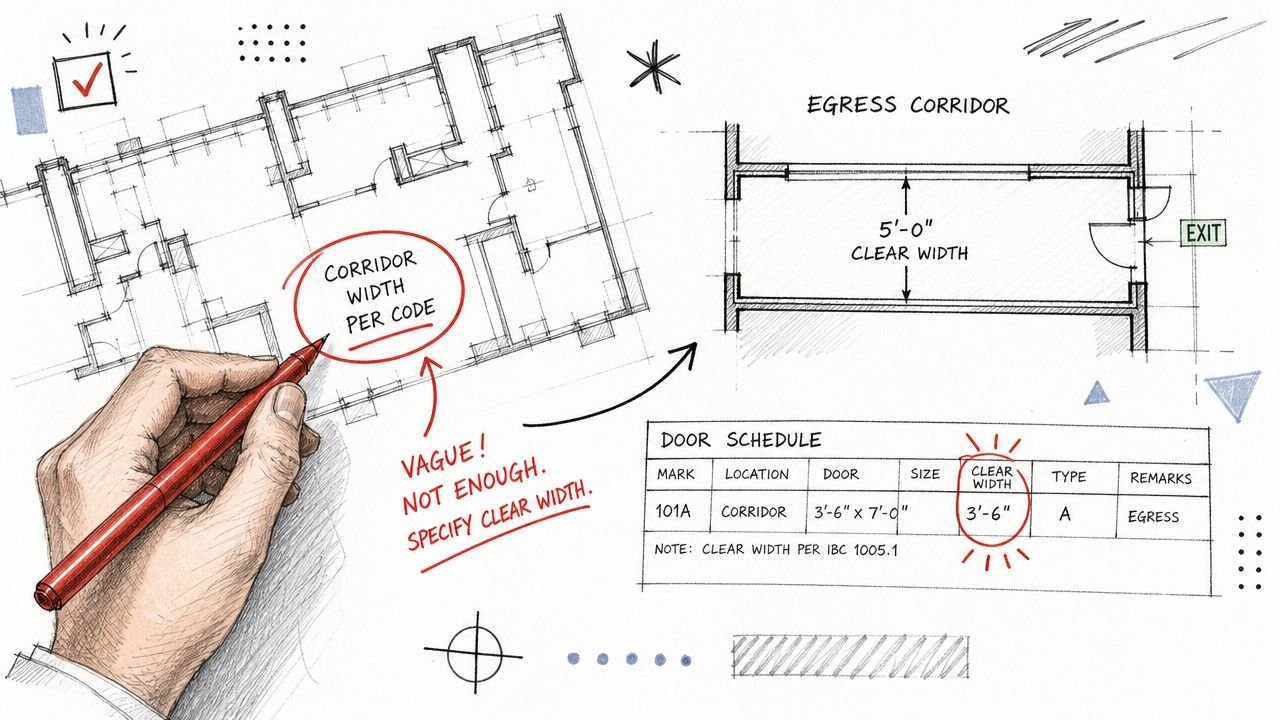 CORRIDOR
WIDTH
PER CODE
VAGUE!
NOT ENOUGH.
SPECIFY CLEAR WIDTH.
EGRESS CORRIDOR
5'-0"
CLEAR WIDTH
EXIT
DOOR SCHEDULE
MARK LOCATION DOOR SIZE CLEAR WIDTH TYPE REMARKS
101A CORRIDOR 3'-6" x 7'-0" 3'-6" A EGRESS
NOTE: CLEAR WIDTH PER IBC 1005.1